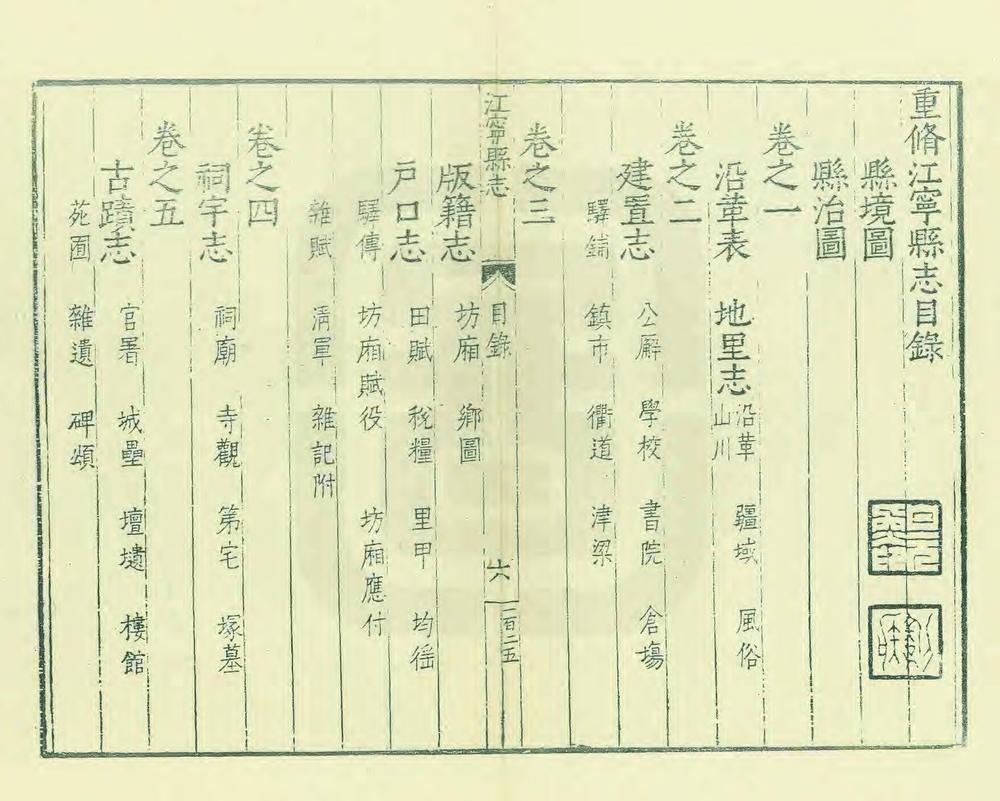 重脩江寧縣志目錄
縣境圖
縣治圖
卷之一
沿革表 地里志 沿革 山川 疆域 風俗
卷之二
建置志 公廨 學校 書院 倉場
驛鋪 鎮市 衢道 津梁
卷之三
江寧縣志 目錄 六 二百二五
版籍志 坊廂 鄉圖
戶口志 田賦 稅糧 里甲 均徭
驛傳 坊廂賦役 坊廂應付
雜賦 清軍 雜記附
卷之四
祠宇志 祠廟 寺觀 第宅 塚墓
卷之五
古蹟志 官署 城壘 壇壝 樓館
苑囿 雜遺 碑頌